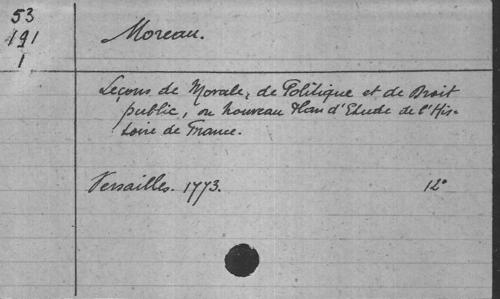 53
191
1
Moreau.
Leçons de Morale, de Politique et de Droit
public, ou nouveau Plan d'Etude de l'His-
toire de France.
Versailles. 1773. 12°